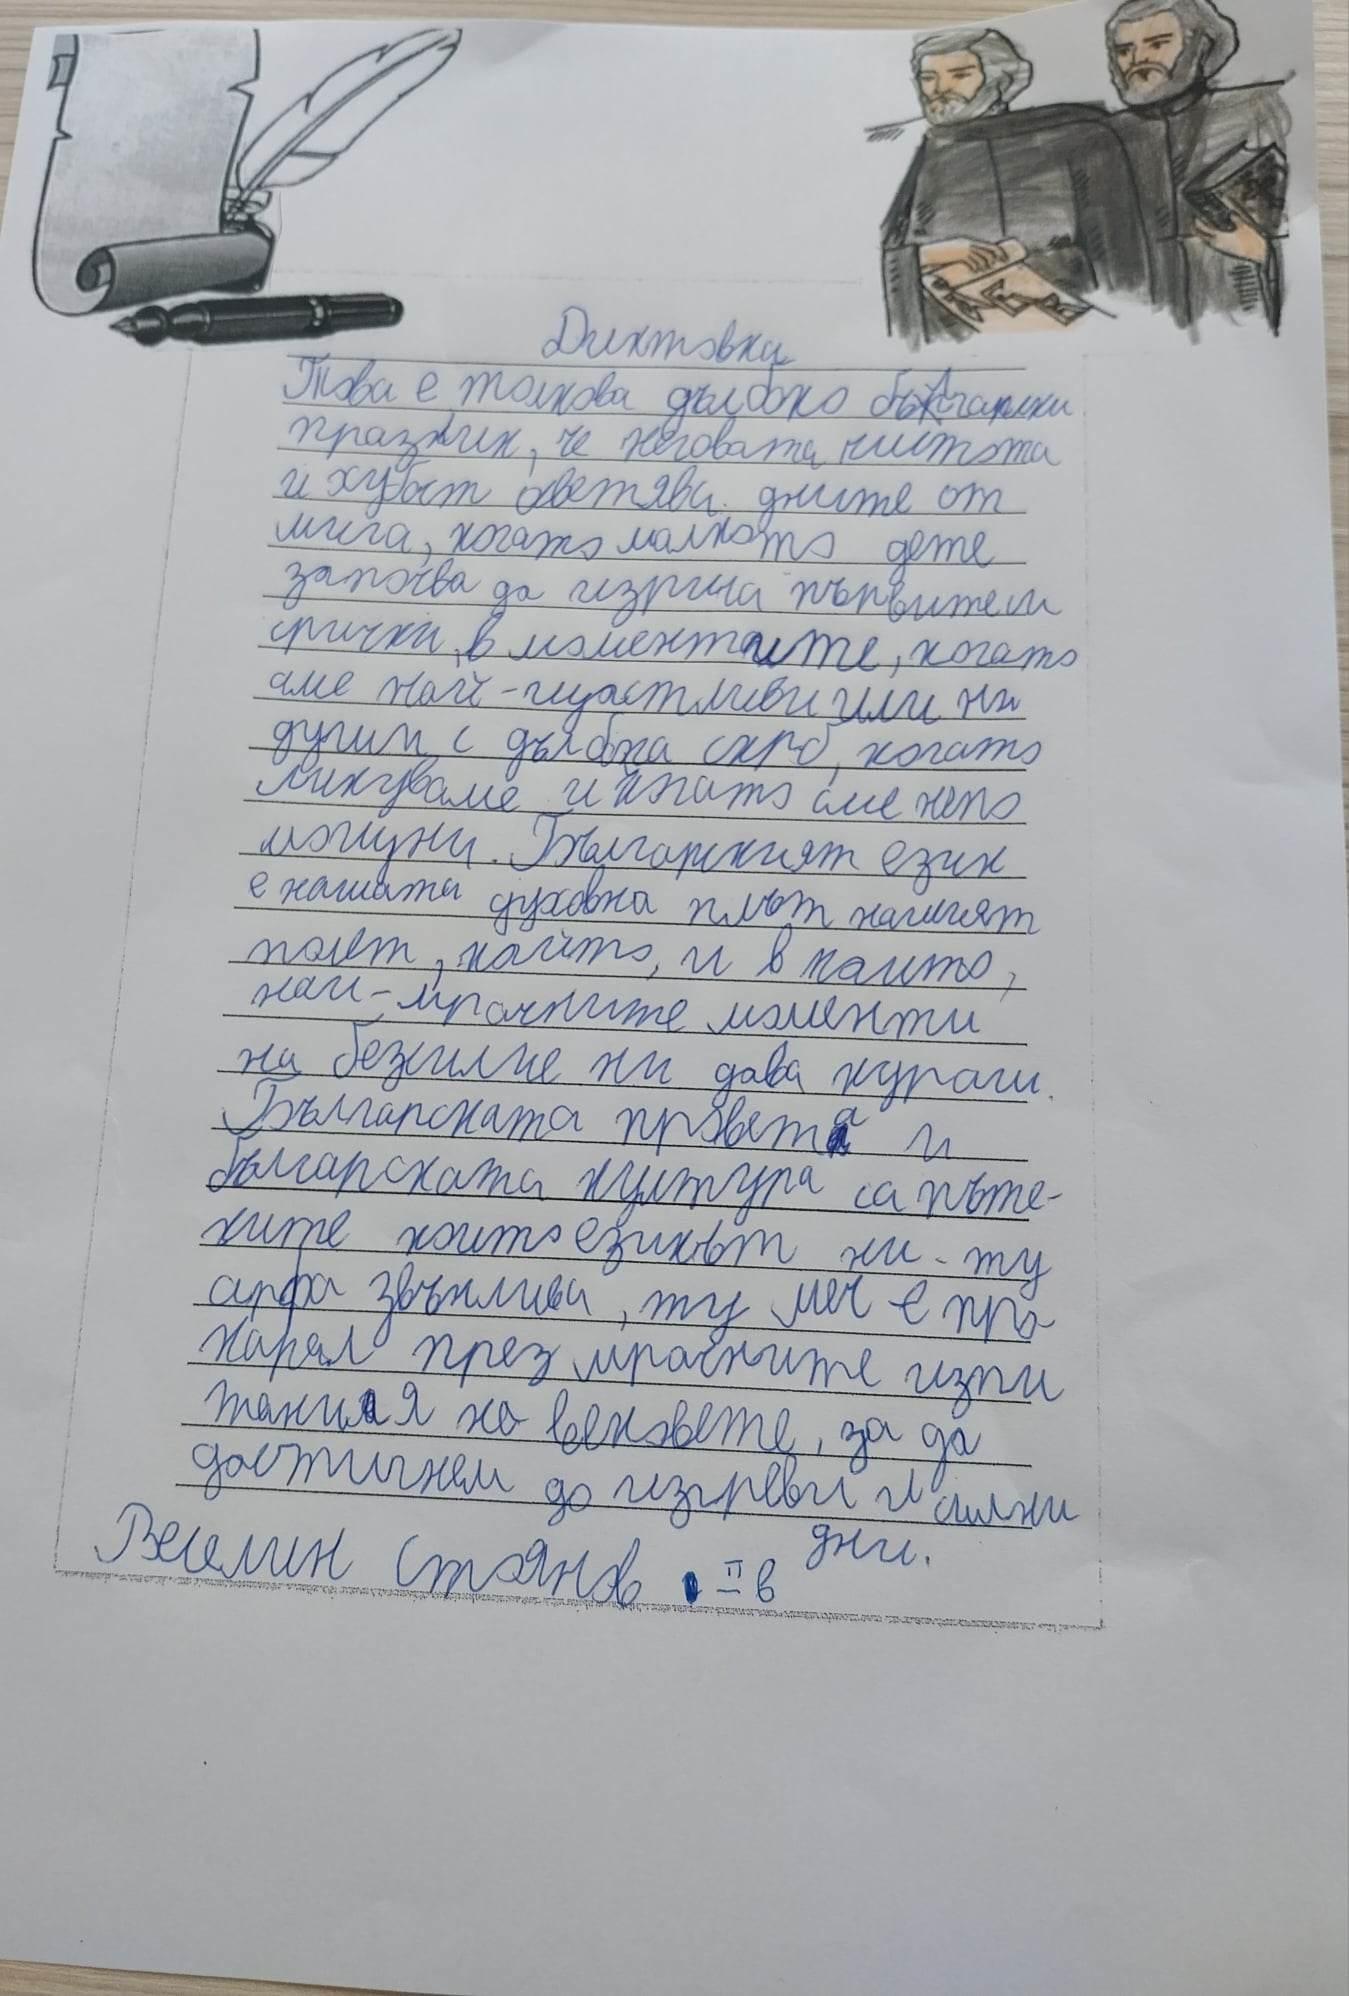 Диктовка
Това е толкова дълбоко български
празник, че неговата чистота
и хубост осветява дните от
мига, когато малкото дете
започва да изрича първите си
срички, в моментите, когато
сме най-щастливи или ни
души с дълбока скръб, когато
ликуваме и когато сме непо
мощни. Българският език
е нашата духовна плът нашият
полет, който, и в които,
най-мрачните моменти
на безсилие ни дава кураж.
Българската просвета и
българската култура са пъте-
ките които езикът ни - ту
арфа звънлива, ту меч е про-
карал през мрачните изпи
тания на вековете, за да
достигнем до изгреви и силни
дни.
Веселин Стоянов II в